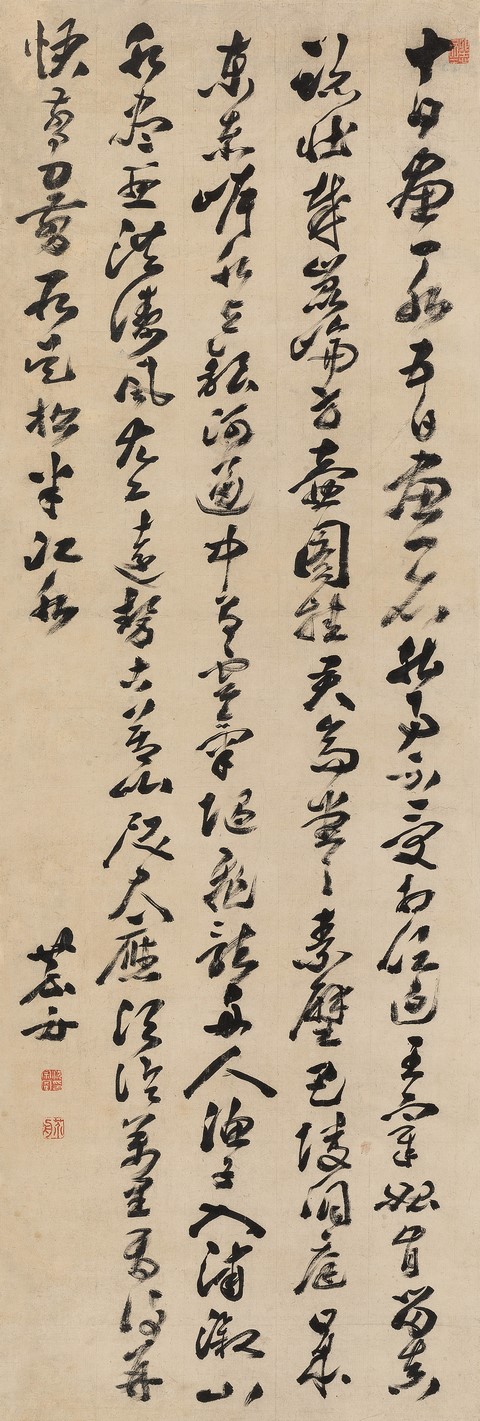 十日畫一水五日畫一石能事不受相促迫王宰始肯留真
跡壮哉崑崙方壺圖挂君高堂之素壁巴陵洞庭日本
東赤岸水与銀河通中有雲氣随飛龍舟人漁子入浦溆山
木盡亞洪濤風尤工遠勢古莫比咫尺應須論萬里焉得并
快剪刀剪取吴松半江水